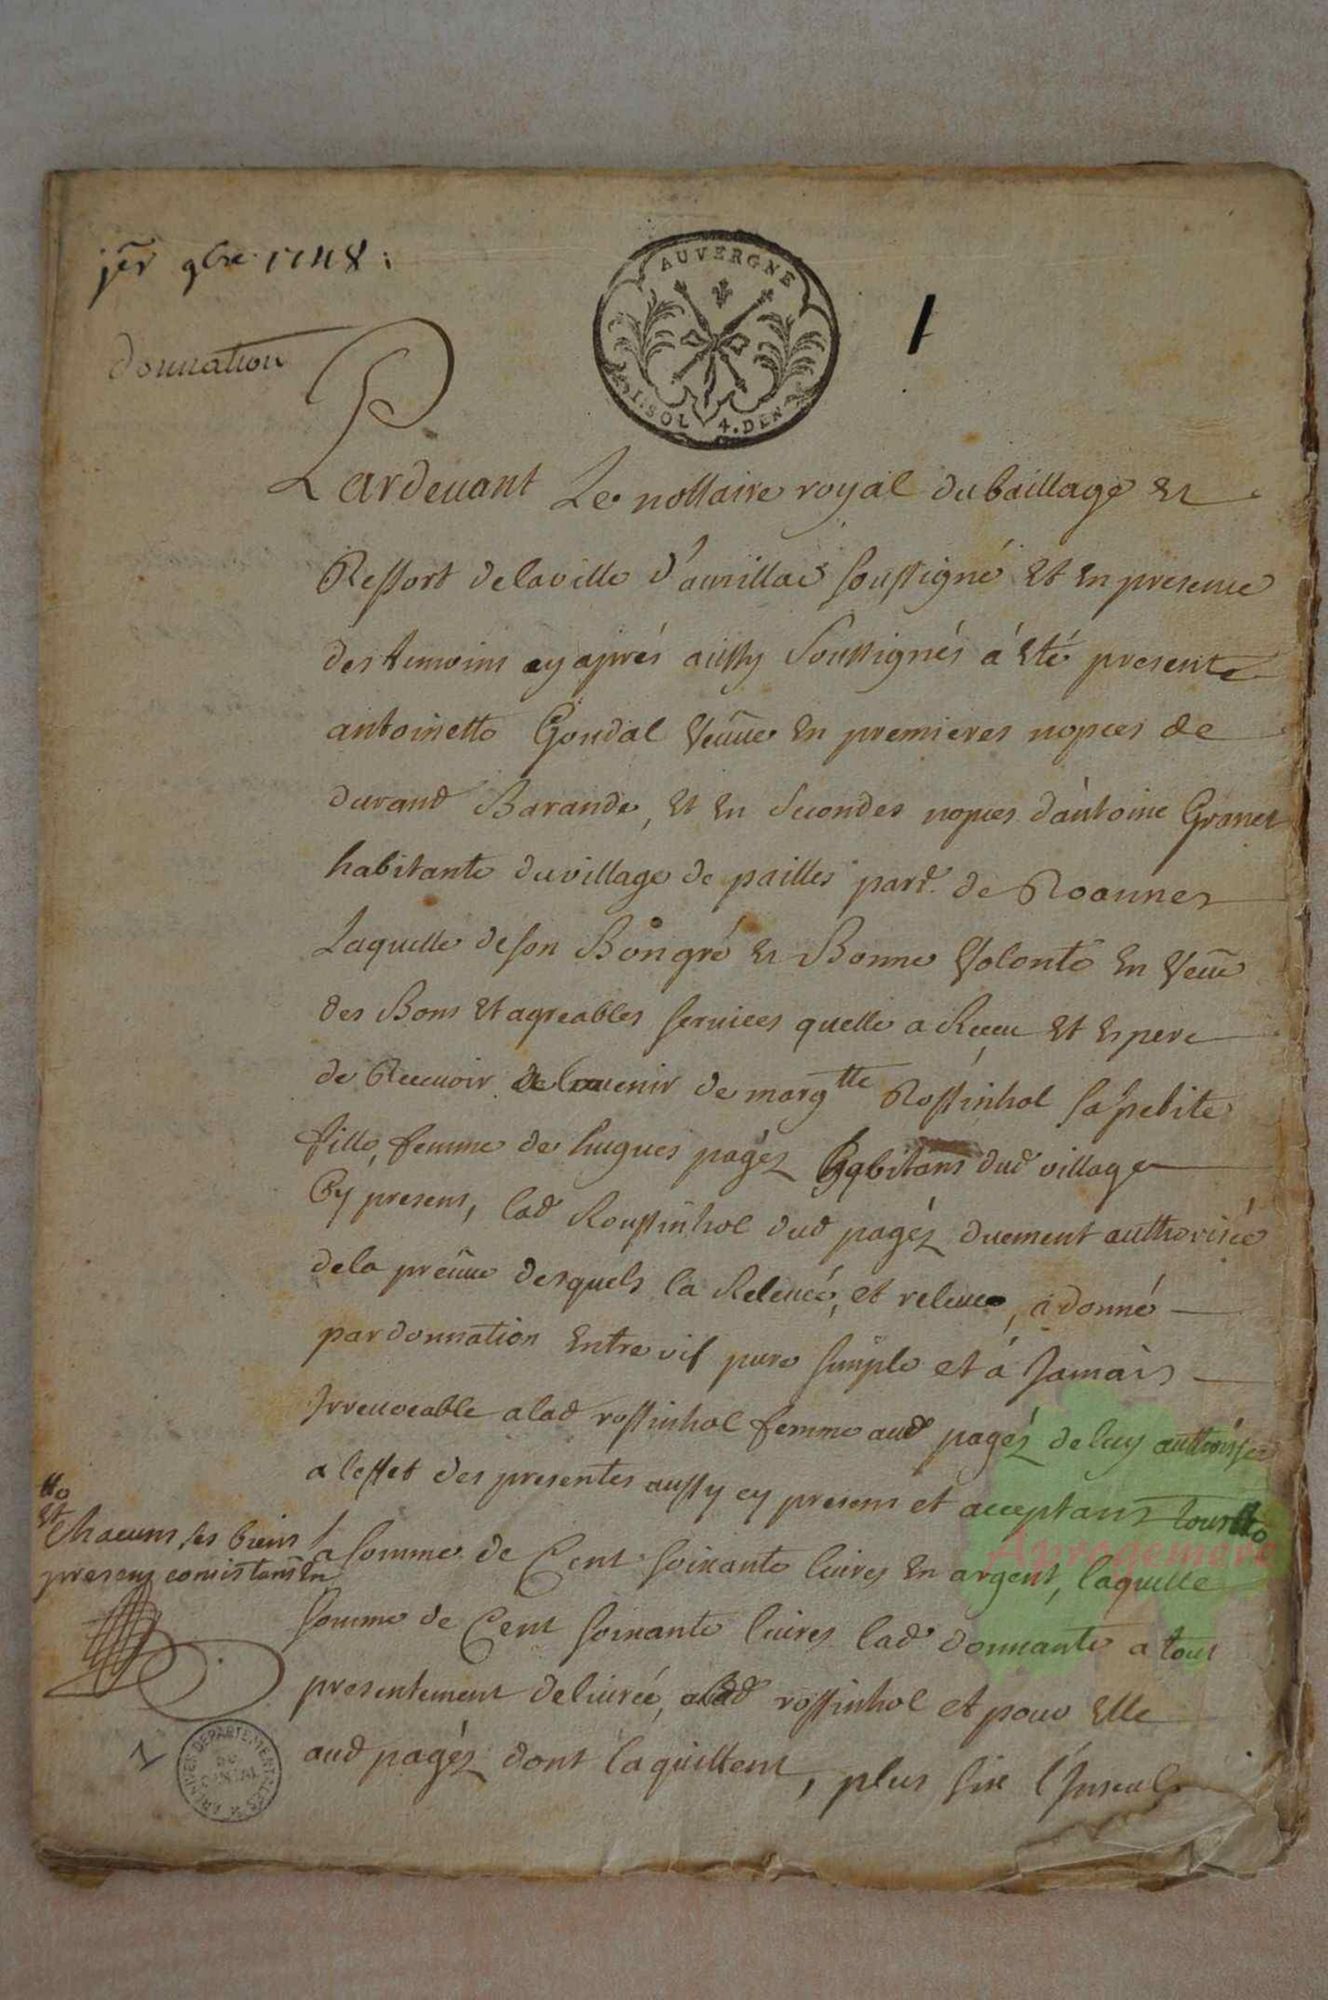 jer 9bre 1748 :
AUVERGNE
1. SOL 4. DEN
1
donnation
Pardevant Le nottaire royal du baillage Et
Ressort de la ville d'aurillac soussigné Et En presence
des temoins cy aprés aussy Soussignés á Eté presente
antoinette Goudal Veuve En premieres nopces de
durand Barande, Et En secondes nopces d'antoine Granet
habitante du village de pailles parr. de Roannes
Laquelle de son Bon gré Et Bonne Volonté En Veüe
des Bons Et agreables services quelle a Receu Et Espere
de Recevoir a lavenir de margtte Rossinhol sa petite
fille, femme de hugues pagéz habitans dud village
Cy presens, lad Roussinhol dud pagéz duement authorisée
de la preuve desquels la Relevé, et releve, a donné
par donnation Entre vif pure simple et á Jamais
Irrevocable a lad rossinhol femme aud pagéz de luy authorisée
a leffet des presentes aussy cy presens et acceptans tous
la somme de Cent soixante livres En argent, laquelle
somme de Cent soixante livres lad donnante a tout
presentement delivrée, a lad rossinhol et pour Elle
aud pagéz dont la quittent, plus six
Et Chacuns ses biens
presens consistans En
ARCHIVES DEPARTEMENTALES
Aprogemere